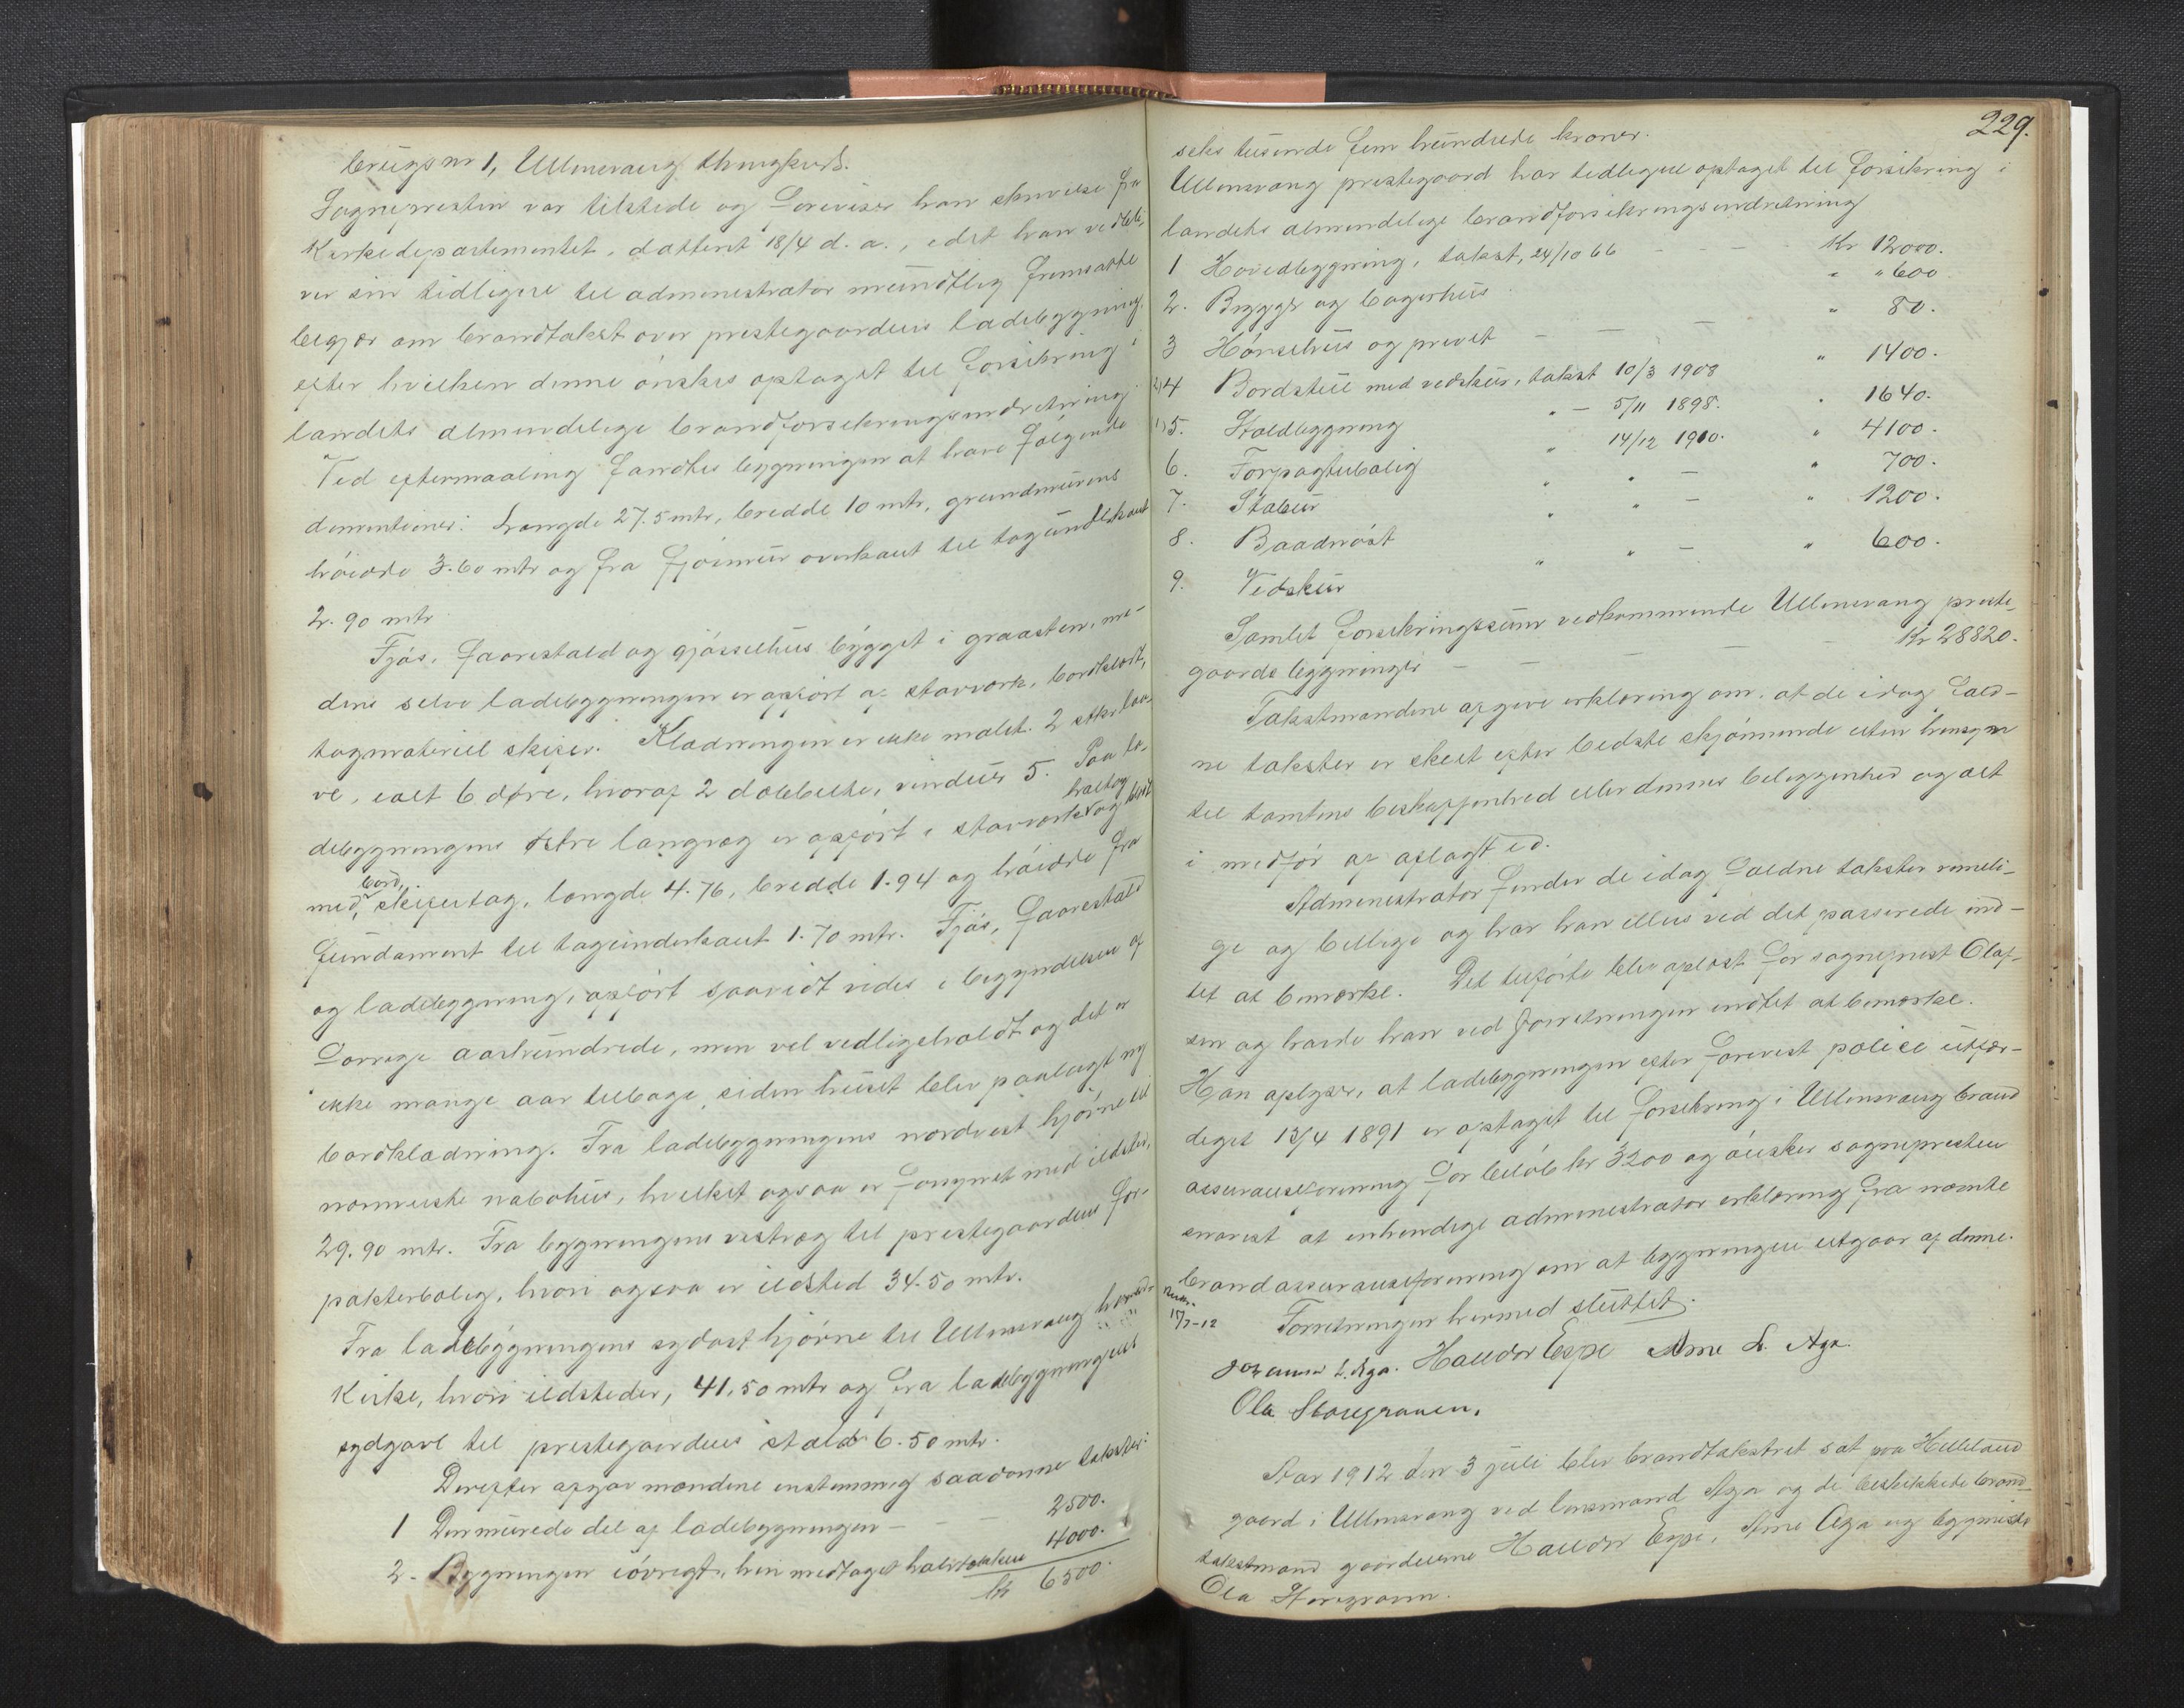 brugsnr 1, Ullensvang thinglund.
Sognepresten var tilstede og foreviser han skrivelse fra
Kirkedepartementet, dattert 18/4 d. a., idet han vedbli-
ver sin tidligere til administrator mundtlig fremsatte
begjær om brandtakst over prestegaardens ladebygning
efter hvilken denne ønskes optaget til forsikring i
landets almindelige brandforsikringsindretning.
Ved eftermaaling fandtes bygningen at have følgende
dimentioner: Længde 27.5 mtr, bredde 10 mtr, grundmurens
høidde 3.60 mtr og fra fjøsmur overkant til tagunderkant
2.90 mtr
Fjøs, faarestald og gjødselhus bygget i graasten, me-
dens selve ladebygningen er opført af stavverk, bordklædt,
tagmateriel skifer. Klædningen er ikke malet. 2 stkr laa-
ve, ialt 6 døre, hvoraf 2 dobbelte, vinduer 5. Paa la-
debygningens østre langvæg er opført i stavverk og
halvtag
bord,
med skifertag, længde 4.76, bredde 1.94 og høidde fra
fundament til tagunderkant 1.70 mtr. Fjøs, faarestald
og ladebygning, opført saavidt vides i begyndelsen af
forrige aarhundrede, men vel vedligeholdt og det er
ikke mange aar tilbage, siden huset blev paalagt ny
bordklædning. Fra ladebygningens nordvest hjørne til
nærmeste nabohus, hvilket ogsaa er forsynet med ildsted,
29.90 mtr. Fra bygningens vestvæg til prestegaardens for-
pakterbolig, hvori ogsaa er ildsted 34.50 mtr.
Fra ladebygningens sydost hjørne til Ullensvang
Kirke, hvori ildsteder, 41,50 mtr og fra ladebygningens
sydgavl til prestegaardens stald 6.50 mtr.
Derefter afgav mændene enstemmig saadanne takster:
1 Den murede del af ladebygningen — — — 2500.
2. Bygningen iøvrigt, heri medtaget halvtakken 4000.
kr 6500.
229.
seks tusende fem hundrede kroner.
Ullensvang prestegaard har tidligere optaget til forsikring i
landets almindelige brandforsikringsindretning
1 Hovedbygning, takst, 24/10 66 — — — Kr 12000.
2. Brygge og bagerhus " " 600
3 Hønsehus og privet — — — " 80.
2) 4 Bordstue med vedskur, takst 10/3 1908 " 1400.
1) 5. Staldbygning " — 5/11 1898. " 1640.
6. Forpagterbolig " 14/12 1910. " 4100.
7. Stabur " " — " 700.
8. Baadnøst " " — " 1200.
9. Vedskur " " — " 600.
Samlet forsikringssum vedkommende Ullensvang preste-
gaards bygninger — — — — — Kr 28820.
Takstmændene afgive erklæring om, at de idag fald-
ne takster er skeet efter bedste skjønnende uten hensyn
til tomtens beskaffenhed eller dennes beliggenhed og alt
i medfør af aflagt ed.
Administrator finder de idag faldne takster rimeli-
ge og billige og har han ellers ved det passerede ind-
tet at bemærke. Det tilførte blev oplæst for sogneprest Olaf-
sen og havde han ved forretningen indtet at bemærke.
Han oplyser, at ladebygningen efter forevist police utfær-
diget 13/4 1891 er optaget til forsikring i Ullensvang brand
assuranseforening for beløb kr 3200 og ønsker sognepresten
snarest at inhendige administrator erklæring fra nævnte
brandassuranseforening om at bygningen utgaar af denne.
15/7-12
Forretningen hermed sluttet.
Johannes L. Aga. Halldor Espe Arne L. Aga.
Ola Storegraven.
Aar 1912 den 3 juli blev brandtakstret sat paa Helleland
gaard i Ullensvang ved lensmand Aga og de beskikkede brand-
takstmænd gaardeierne Halldor Espe, Arne Aga og bygmester
Ola Storegraven.